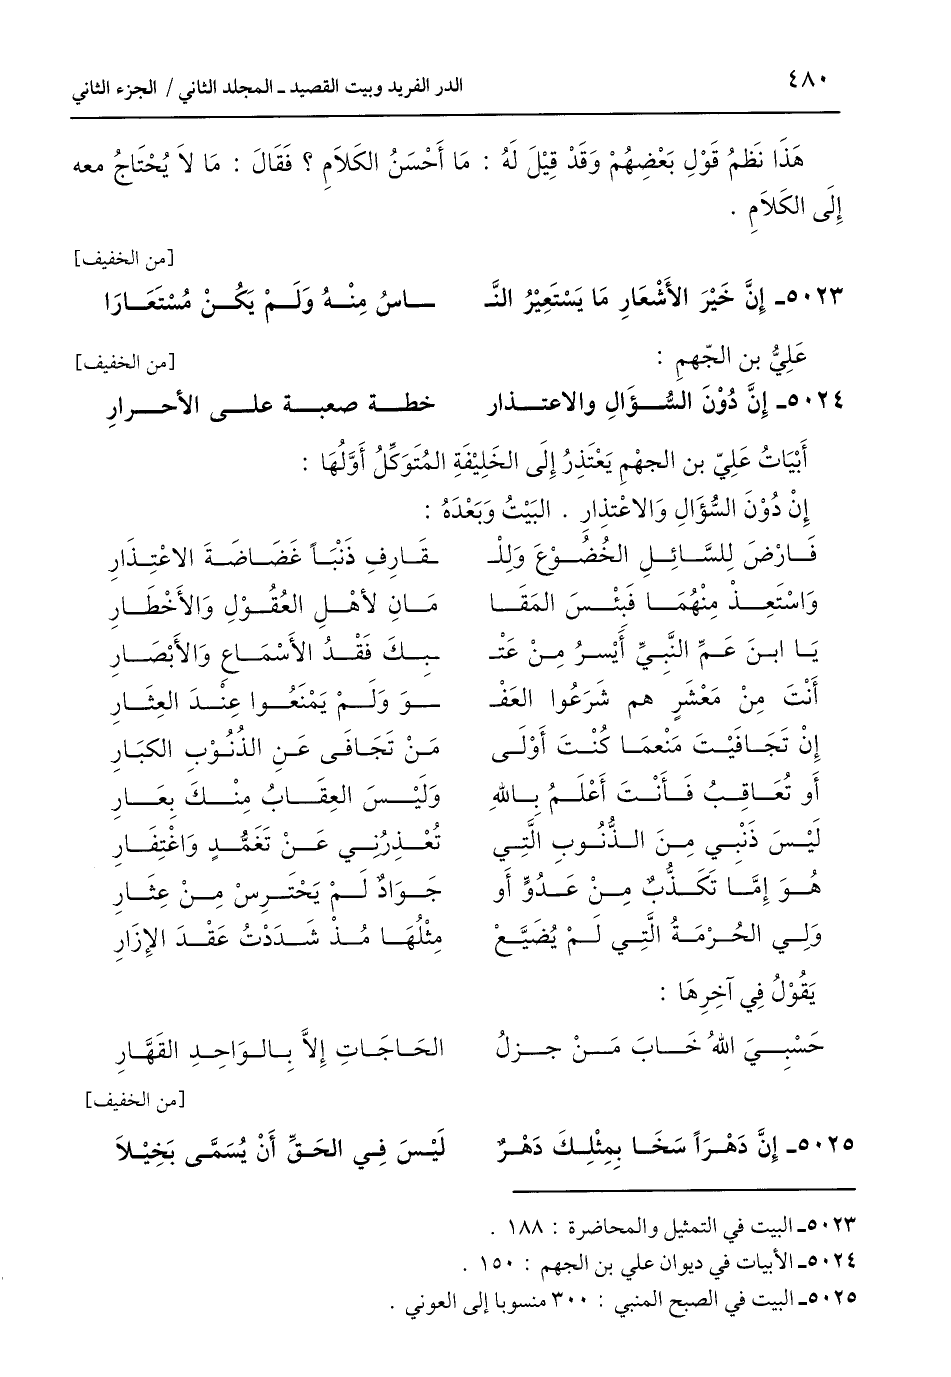 الدر الفريد وبيت القصيد ـ المجلد الثاني / الجزء الثاني ٤٨٠
هَذَا نَظمُ قَوْلِ بَعْضِهُمْ وَقَدْ قِيْلَ لَهُ : مَا أَحْسَنُ الكَلَامِ ؟ فَقَالَ : مَا لاَ يُحْتَاجُ معه
إِلَى الكَلاَمِ .
[من الخفيف]
٥٠٢٣ـ إِنَّ خَيْرَ الأَشْعَارِ مَا يَسْتَعِيْرُ النَّـ ـاسُ مِنْهُ وَلَمْ يَكُنْ مُسْتَعَارَا
عَلِيُّ بن الجّهمِ : [من الخفيف]
٥٠٢٤ـ إِنَّ دُوْنَ السُّؤَالِ والاعتذار خطة صعبة على الأحرارِ
أَبْيَاتُ عَلِيّ بن الجهْمِ يَعْتَذِرُ إِلَى الخَلِيْفَةِ المُتَوَكِّلُ أَوَّلُهَا :
إِنْ دُوْنَ السُّؤَالِ وَالاعْتِذَارِ . البَيْتُ وَبَعْدَهُ :
فَارْضَ لِلسَّائِلِ الخُضُوْعَ وَلِلـ ـقَارِفِ ذَنْبَاً غَضَاضَةَ الاعْتِذَارِ
وَاسْتَعِذْ مِنْهُمَا فَبِئْسَ المَقَا مَانِ لأَهْلِ العُقُوْلِ وَالأَخْطَارِ
يَا ابنَ عَمِّ النَّبِيِّ أَيْسَرُ مِنْ عَتْـ ـبِكَ فَقْدُ الأَسْمَاعِ وَالأَبْصَارِ
أَنْتَ مِنْ مَعْشَرٍ هم شَرَعُوا العَفْـ ـوَ وَلَمْ يَمْنَعُوا عِنْدَ العِثَارِ
إِنْ تَجَافَيْتَ مَنْعمَا كُنْتَ أَوْلَى مَنْ تَجَافَى عَنِ الذُنُوْبِ الكبَارِ
أَو تُعَاقِبُ فَأَنْتَ أَعْلَمُ بِاللهِ وَلَيْسَ العِقَابُ مِنْكَ بِعَارِ
لَيْسَ ذَنْبِي مِنَ الذُّنُوبِ الَّتِي تُعْذِرُنِي عَنْ تَغَمُّدٍ وَاغْتِفَارِ
هُوَ إِمَّا تَكَذُّبٌ مِنْ عَدُوٍّ أَو جَوَادٌ لَمْ يَحْتَرِسْ مِنْ عِثَارِ
وَلِي الحُرْمَةُ الَّتِي لَمْ يُضَيَّعْ مِثْلُهَا مُذ شَدَدْتُ عَقْدَ الإِزَارِ
يَقُوْلُ فِي آخِرِهَا :
حَسْبِيَ اللهُ خَابَ مَنْ جزلُ الحَاجَاتِ إِلاَّ بِالوَاحِدِ القَهَّارِ
[من الخفيف]
٥٠٢٥ـ إِنَّ دَهْرَاً سَخَا بِمِثْلِكَ دَهْرٌ لَيْسَ فِي الحَقِّ أَنْ يُسَمَّى بَخِيْلاَ
٥٠٢٣ـ البيت في التمثيل والمحاضرة : ١٨٨ .
٥٠٢٤ـ الأبيات في ديوان علي بن الجهم : ١٥٠ .
٥٠٢٥ـ البيت في الصبح المنبي : ٣٠٠ منسوبا إلى العوني .